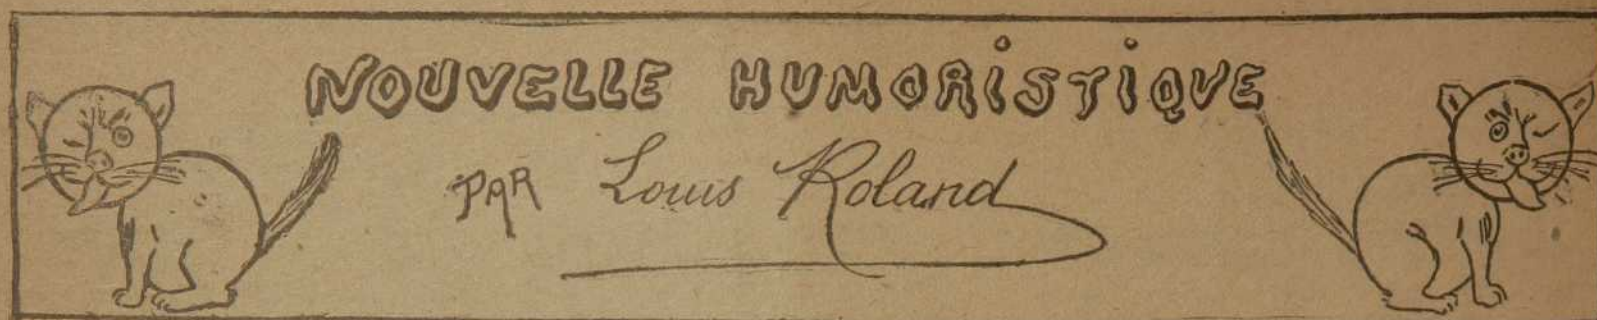 NOUVELLE HUMORISTIQUE
PAR Louis Roland